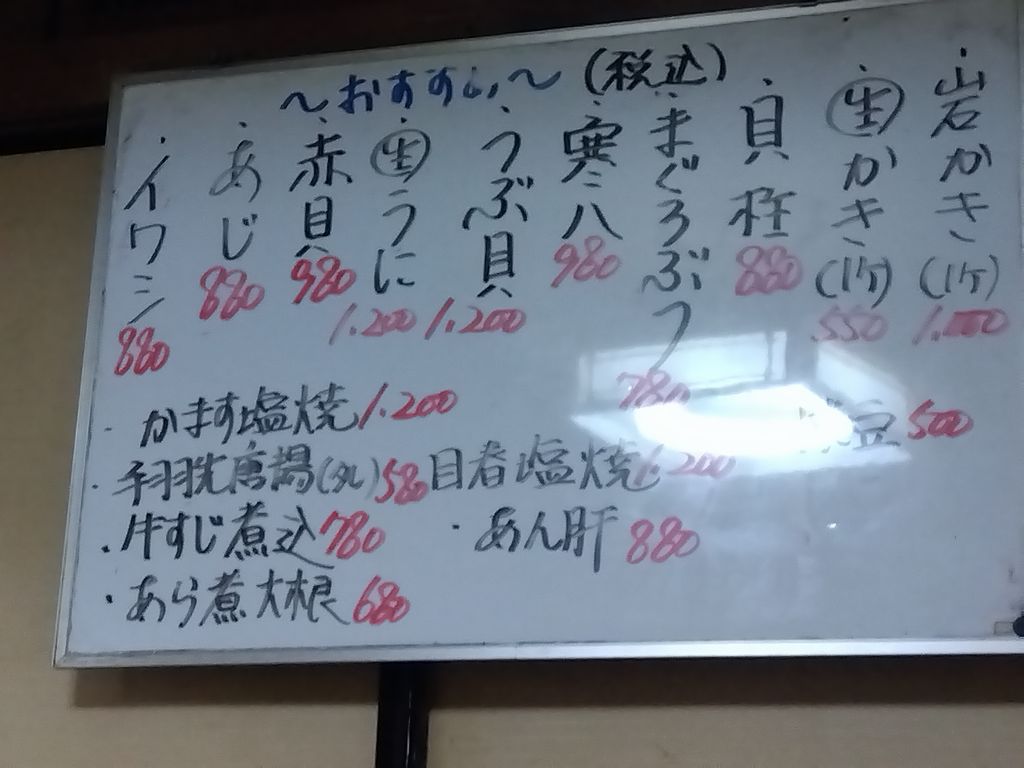 ～おすすめ～（税込）
・岩かき（1ケ） 1.000
・㊤かき（1ケ） 550
・貝柱 880
・まぐろぶつ 780
・寒八 980
・つぶ貝 1.200
・生うに 1.200
・赤貝 980
・あじ 880
・イワシ 880
・かます塩焼 1.200
豆 500
・手羽先唐揚（タレ） 580
目春塩焼 1.200
・牛すじ煮込 780
・あん肝 880
・あら煮大根 680